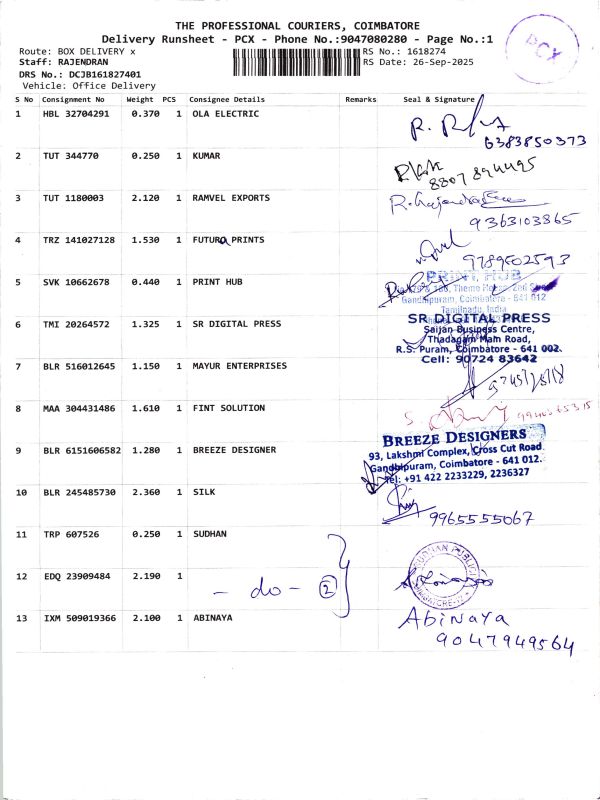 THE PROFESSIONAL COURIERS, COIMBATORE
Delivery Runsheet - PCX - Phone No.:9047080280 - Page No.:1
PCX
Route: BOX DELIVERY x
RS No.: 1618274
Staff: RAJENDRAN
RS Date: 26-Sep-2025
DRS No.: DCJB161827401
Vehicle: Office Delivery
S No Consignment No Weight PCS Consignee Details Remarks Seal & Signature
1 HBL 32704291 0.370 1 OLA ELECTRIC
6383850373
2 TUT 344770 0.250 1 KUMAR
3 TUT 1180003 2.120 1 RAMVEL EXPORTS
9363103865
4 TRZ 141027128 1.530 1 FUTURA PRINTS
9789502593
5 SVK 10662678 0.440 1 PRINT HUB
PRINT HUB
Gandhipuram, Coimbatore - 641 012
Tamilnadu, India
6 TMI 20264572 1.325 1 SR DIGITAL PRESS
SR DIGITAL PRESS
Saijan Business Centre,
Thadagam Main Road,
R.S. Puram, Coimbatore - 641 002.
Cell: 90724 83642
7 BLR 516012645 1.150 1 MAYUR ENTERPRISES
8 MAA 304431486 1.610 1 FINT SOLUTION
9 BLR 6151606582 1.280 1 BREEZE DESIGNER
BREEZE DESIGNERS
93, Lakshmi Complex, Cross Cut Road
Gandhipuram, Coimbatore - 641 012.
Tel: +91 422 2233229, 2236327
10 BLR 245485730 2.360 1 SILK
9965555067
11 TRP 607526 0.250 1 SUDHAN
12 EDQ 23909484 2.190 1
- do - 2
13 IXM 509019366 2.100 1 ABINAYA
Abinaya
9047949564